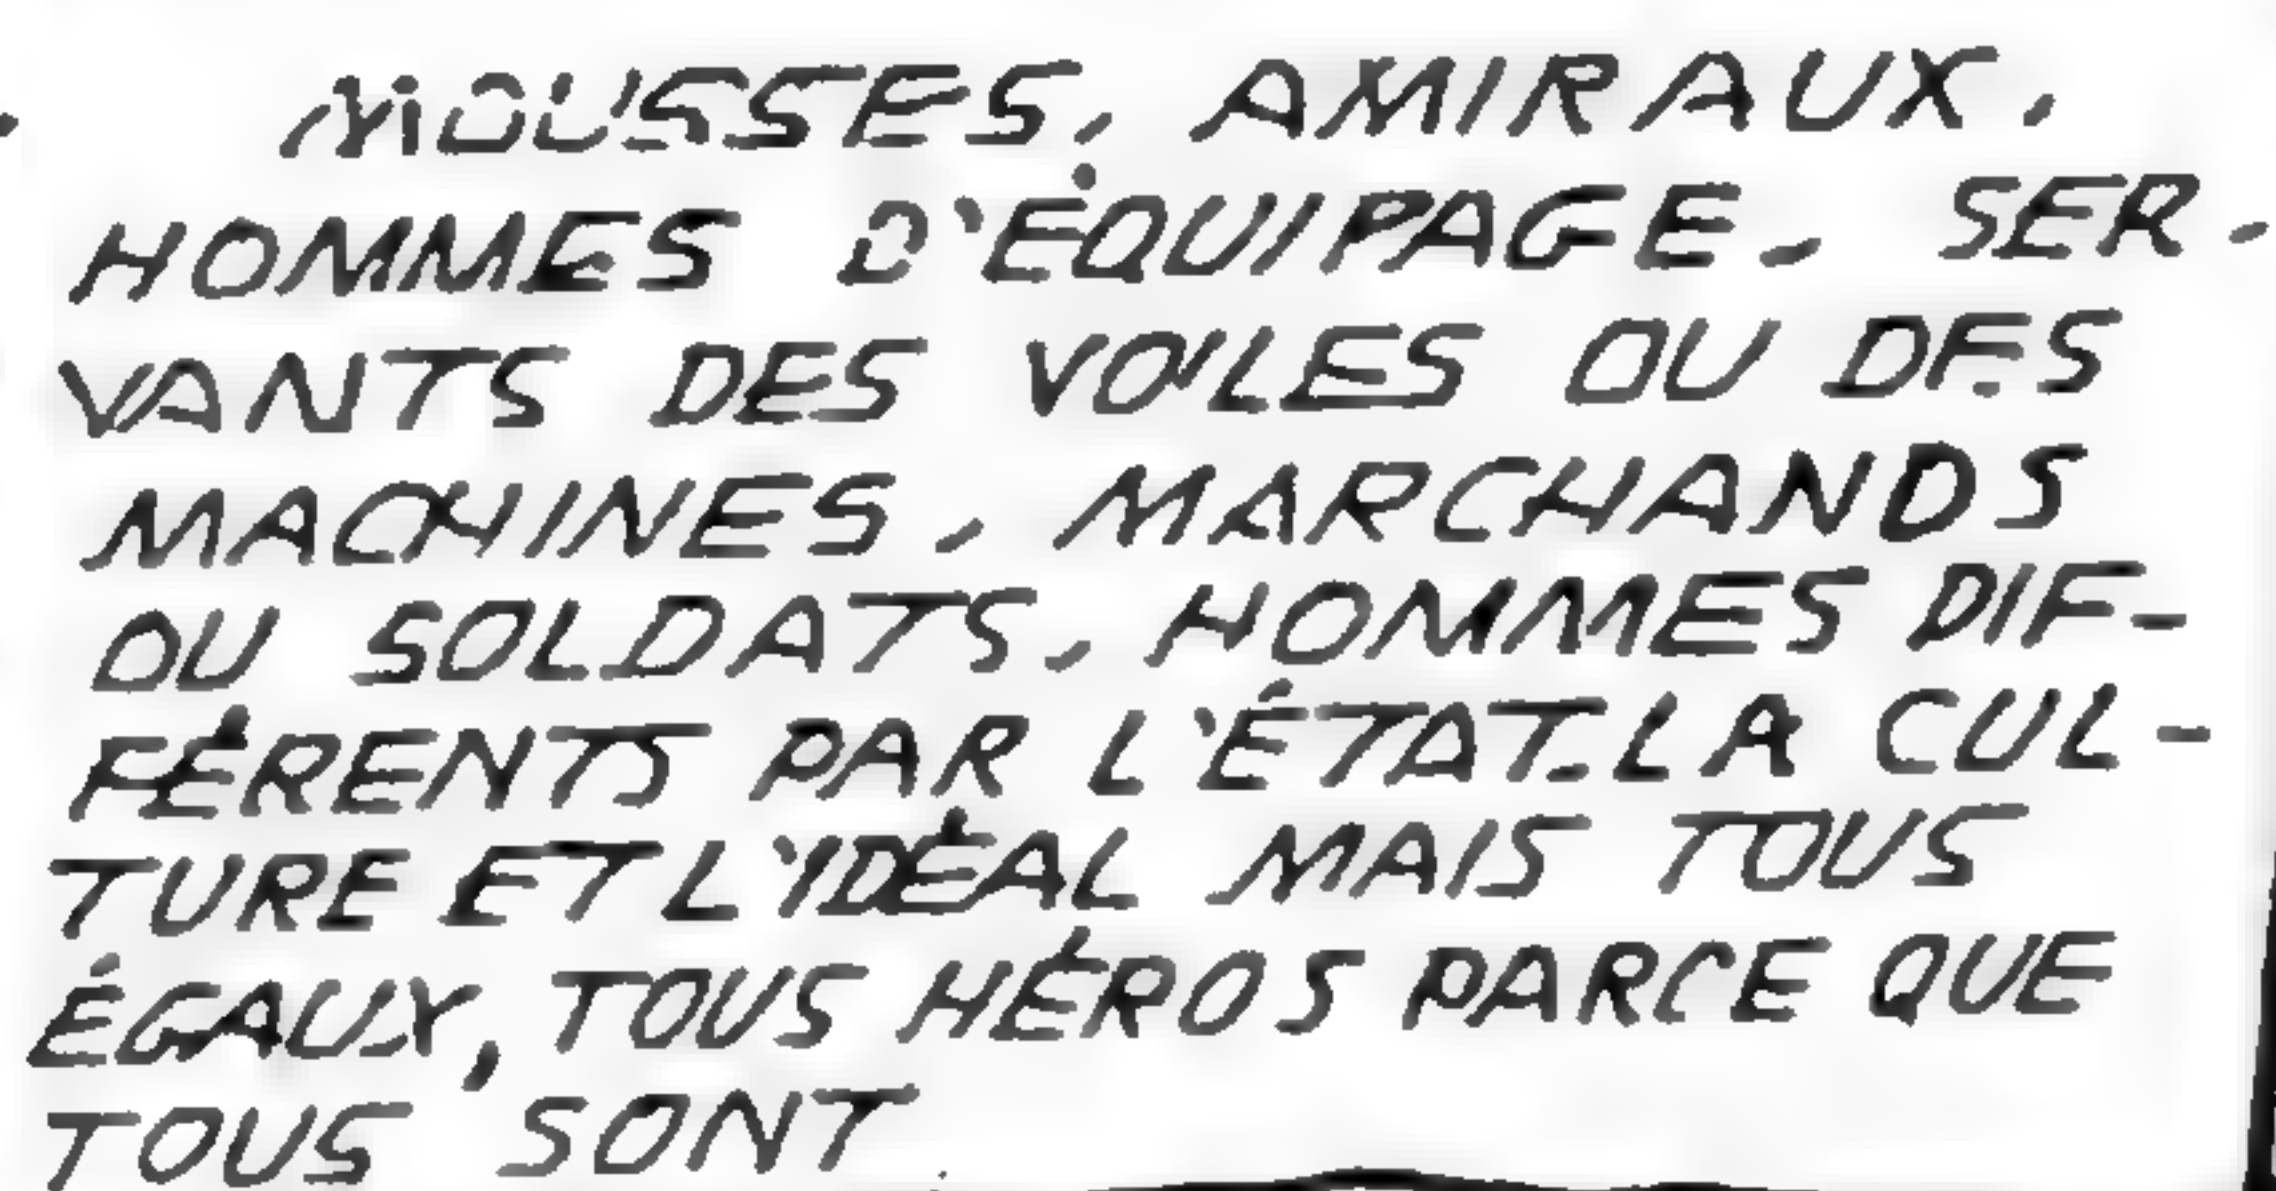 MOUSSES, AMIRAUX,
HOMMES D'ÉQUIPAGE, SER-
VANTS DES VOILES OU DES
MACHINES, MARCHANDS
OU SOLDATS, HOMMES DIF-
FÉRENTS PAR L'ÉTAT, LA CUL-
TURE ET L'IDÉAL MAIS TOUS
ÉGAUX, TOUS HÉROS PARCE QUE
TOUS SONT